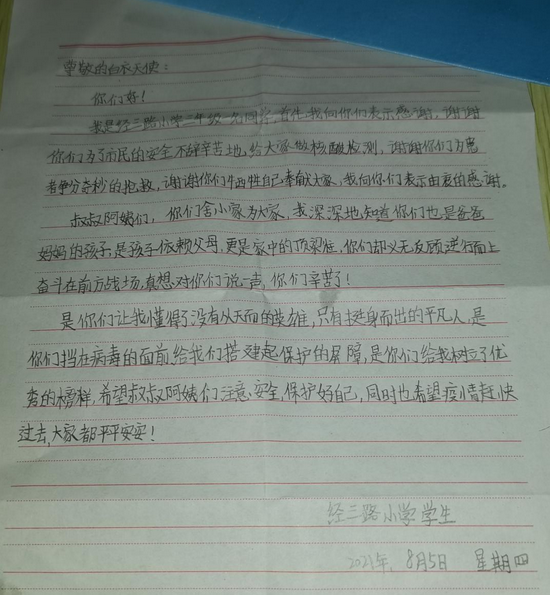 尊敬的白衣天使:
你们好!
我是经三路小学三年级一名同学,首先,我向你们表示感谢,谢谢
你们为了市民的安全不辞辛苦地,给大家做核酸检测,谢谢你们为患
者争分夺秒的抢救,谢谢你们牺牲自己奉献大家,我向你们表示由衷的感谢。
叔叔阿姨们,你们舍小家为大家,我深深地知道你们也是爸爸
妈妈的孩子,是孩子依赖父母,更是家中的顶梁柱,你们却义无反顾,逆行而上
奋斗在前方战场,真想对你们说一声,你们辛苦了!
是你们让我懂得了没有从天而的英雄,只有挺身而出的平凡人,是
你们挡在病毒的面前,给我们搭建起保护的屏障,是你们给我树立了优
秀的榜样,希望叔叔阿姨们注意安全,保护好自己,同时也希望疫情赶快
过去,大家都平平安安!
经三路小学学生
2021年,8月5日 星期四